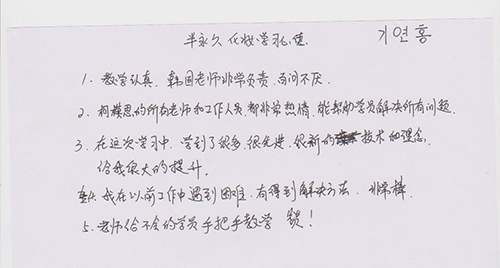 半永久化妆学习心德
기연홍
1. 教学认真,韩国老师非常负责,百问不厌.
2. 柯模思的所有老师和工作人员,都非常热情,能帮助学员解决所有问题.
3. 在这次学习中,学到了很多,很先进,很新的技术和理念,
给我很大的提升.
4. 我在以前工作中遇到困难,有得到解决方法,非常棒.
5. 老师给不会的学员手把手教学 赞!